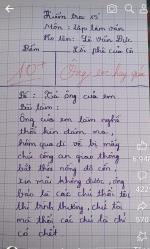 Kiểm tra 15'
Môn: tập làm văn
Họ tên: Lê Văn Đức
Điểm Lời phê của cô
10+
Đề: Tả ông của em
Bài làm:
Ông của em làm nghề
thổi kèn đám ma,
hôm qua đi về bị mấy
chú công an giao thông
bắt thổi nồng độ cồn,
xin mãi không được, ông
bảo là các chú thổi tôi
thì bình thường, chứ tôi
mà thổi các chú là chỉ
có chết
6.948
422
570